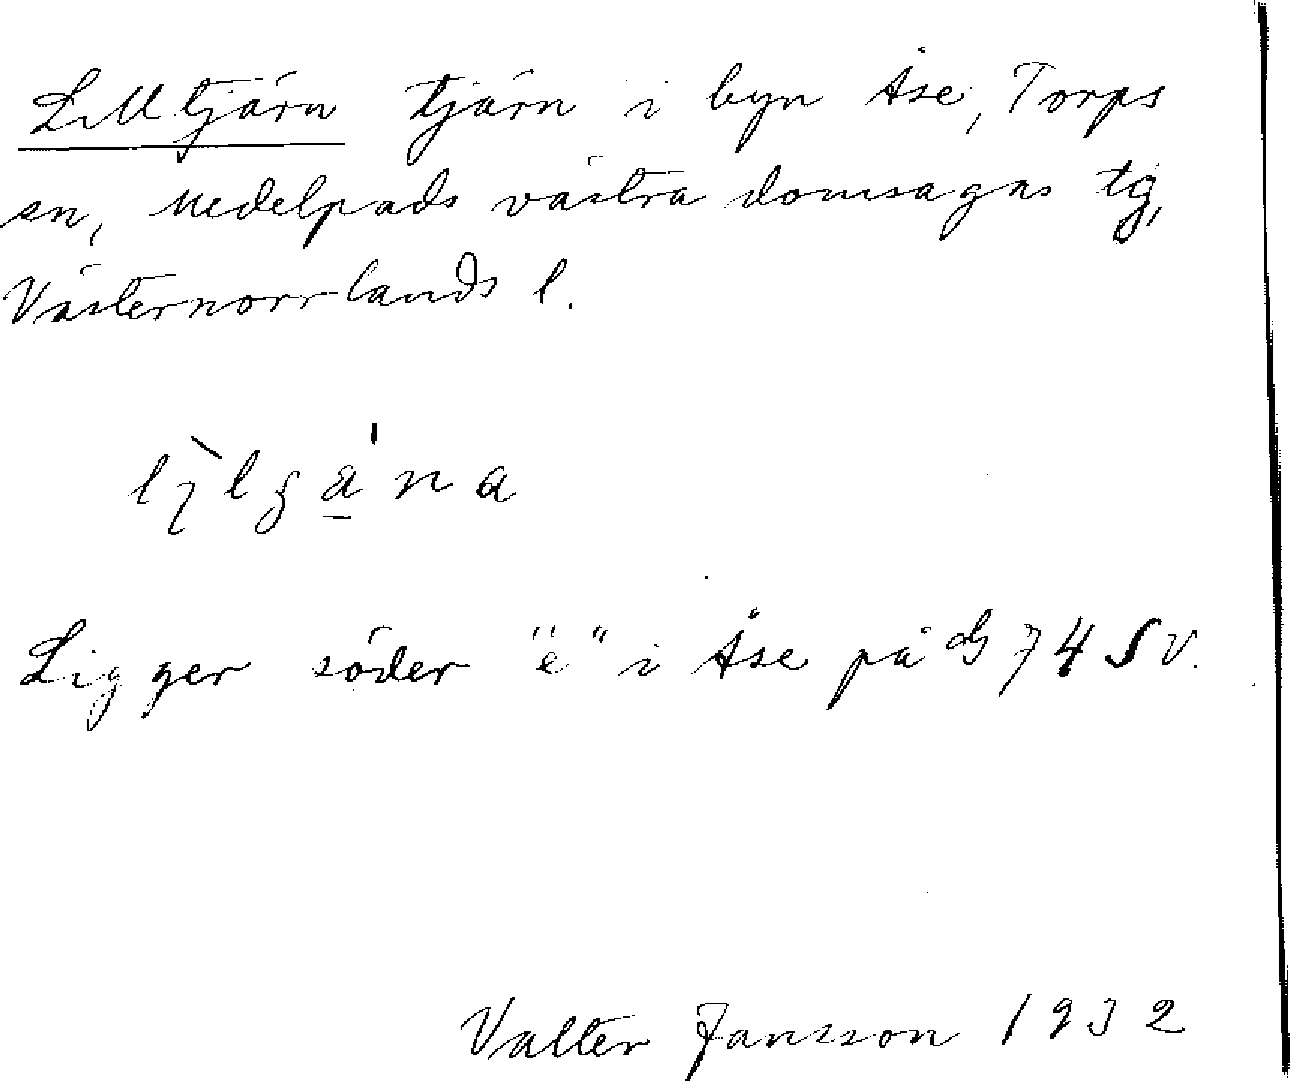 Lilltjärn tjärn i byn Åse, Torps
sn, Medelpads västra domsagas tg,
Västernorrlands l.
Ligger söder "e" i Åse på G 74 SV.
Valter Jansson 1932